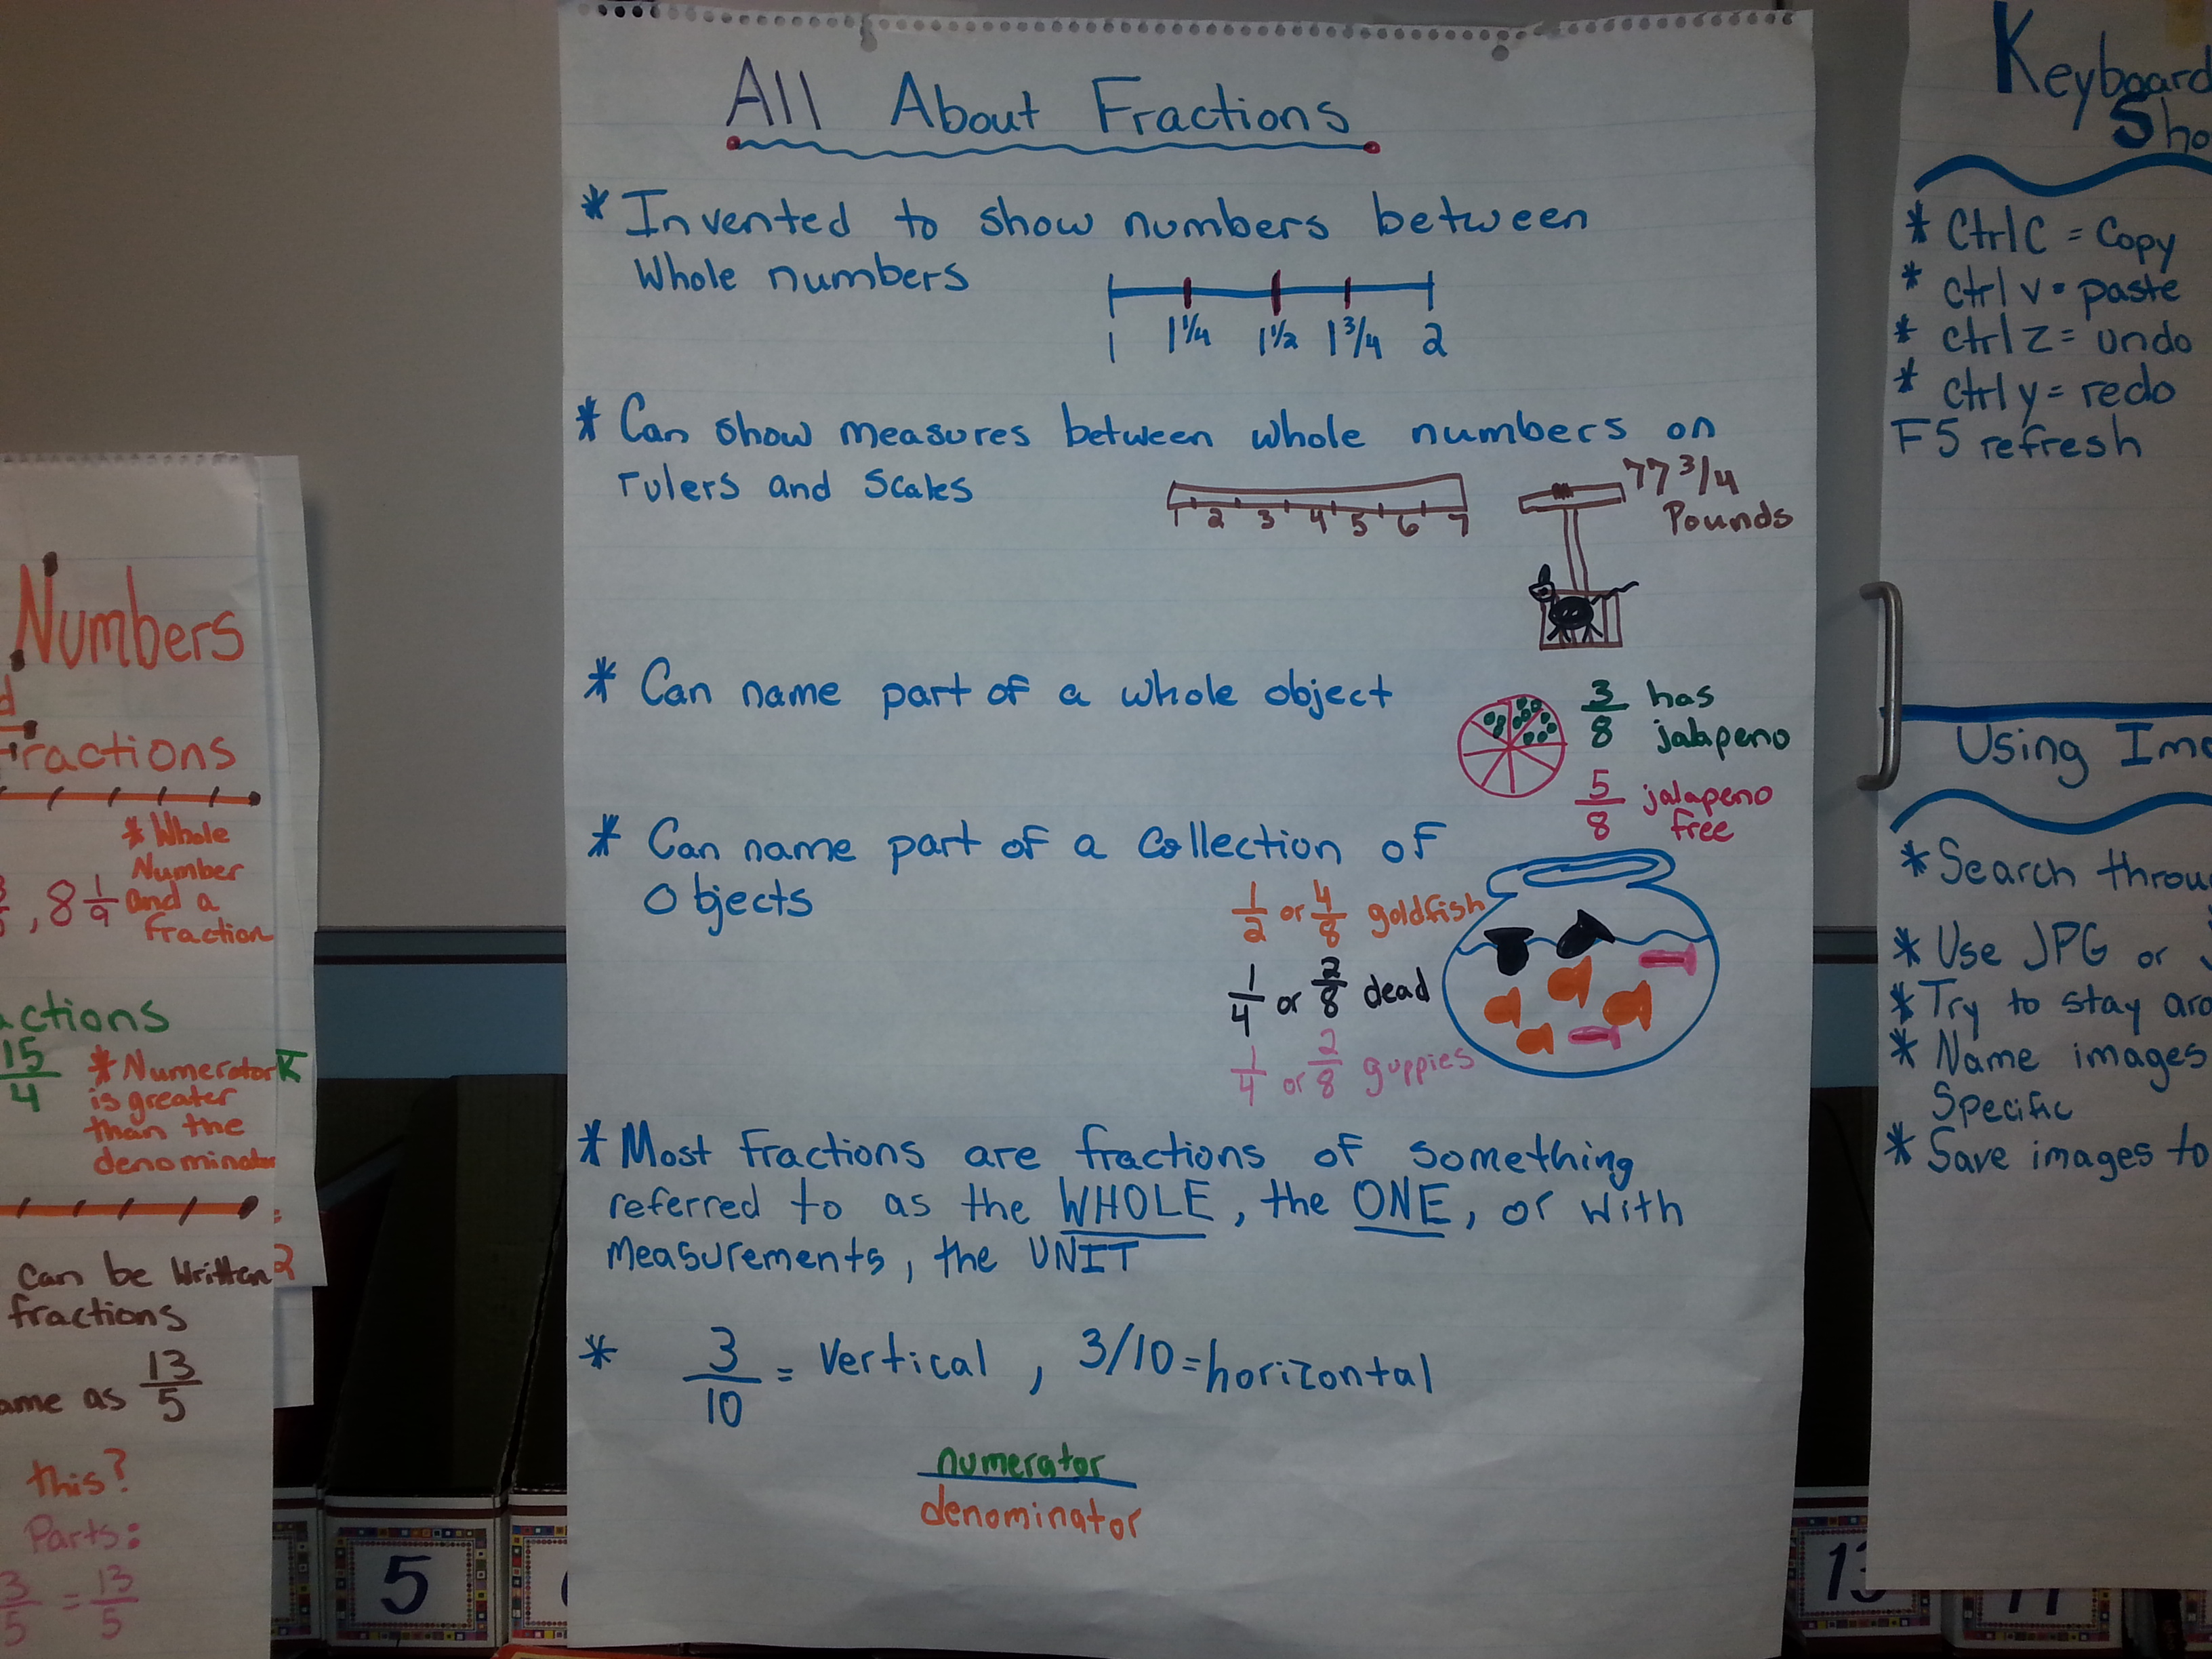 Numbers
Fractions
* Whole
Number
and a
fraction
, 8 1/9
15/4
* Numerator
is greater
than the
denominator
can be written
fractions
as 13/5
this?
Parts:
3/5 = 13/5
5
All About Fractions
* Invented to show numbers between
Whole numbers
1 1 1/4 1 1/2 1 3/4 2
* Can show measures between whole numbers on
rulers and scales
1 2 3 4 5 6 7
77 3/4
Pounds
* Can name part of a whole object
3/8 has
jalapeno
5/8 jalapeno
free
* Can name part of a collection of
Objects
1/2 or 4/8 goldfish
1/4 or 2/8 dead
1/4 or 2/8 guppies
* Most fractions are fractions of something
referred to as the WHOLE, the ONE, or with
measurements, the UNIT
* 3/10 = vertical, 3/10 = horizontal
numerator
denominator
Keyboard
* Ctrl C = Copy
* ctrl v = paste
* ctrl z = undo
* ctrl y = redo
F5 refresh
Using
* Search
* Use JPG or
* Try to stay
* Name images
Specific
* Save images to
13